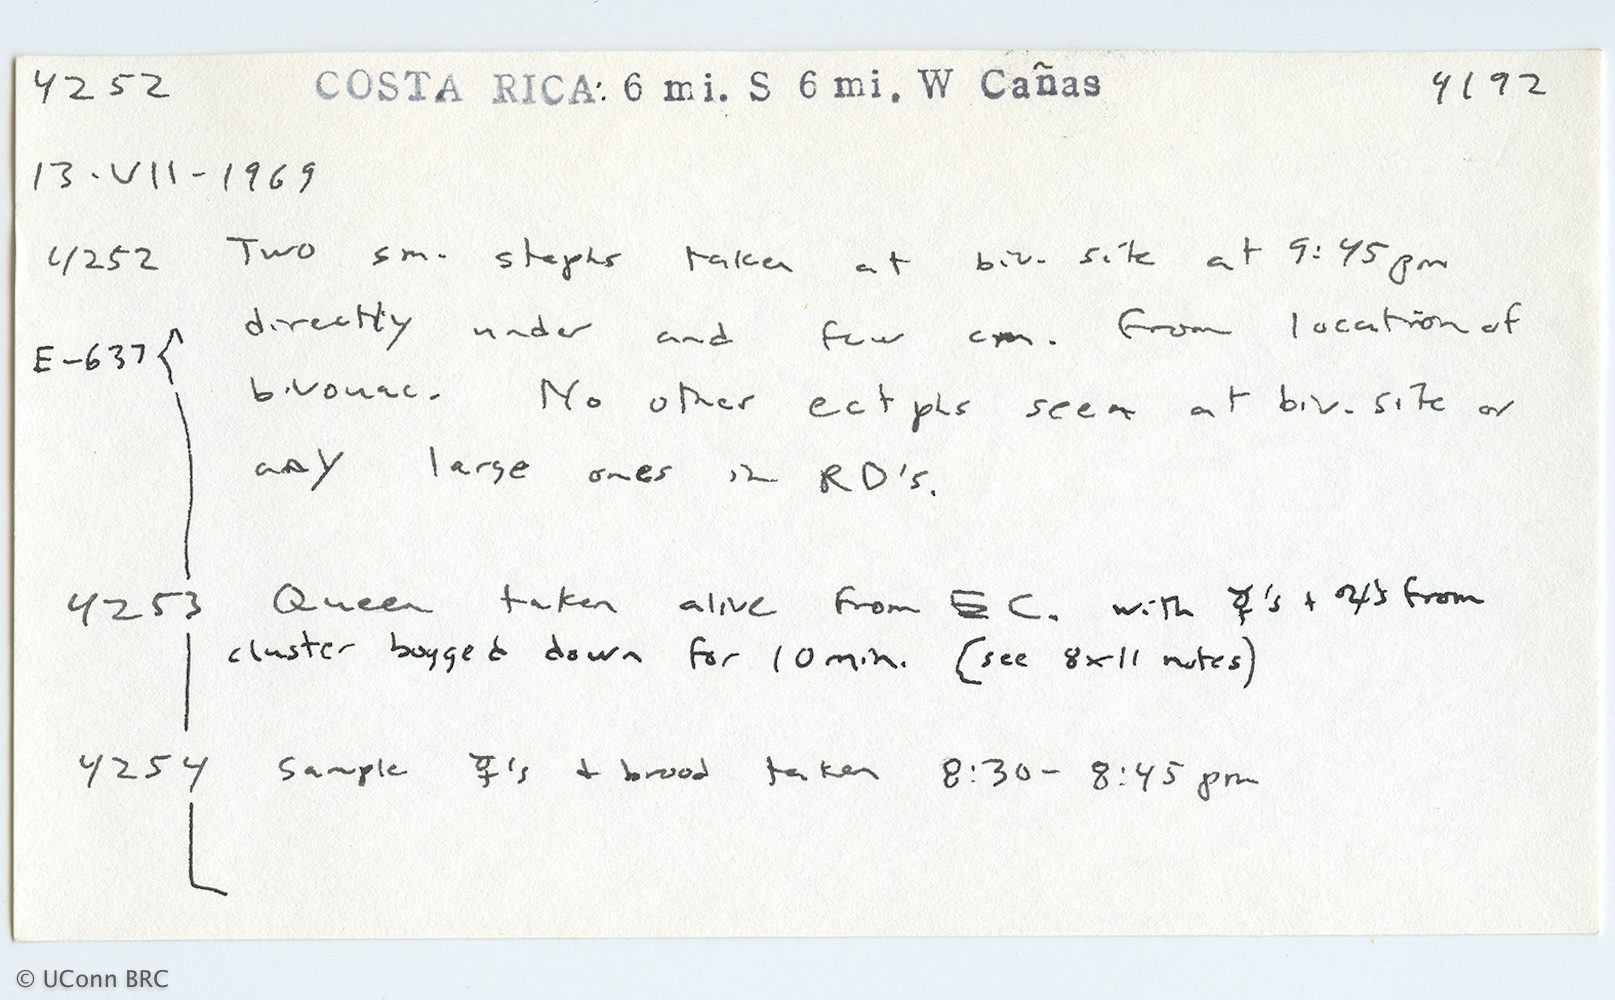 4252 COSTA RICA: 6 mi. S 6 mi. W Cañas 4192
13-VII-1969
4252 Two sm. staphs taken at biv. site at 9:45 pm
directly under and few cm. from location of
E-637 {
bivouac. No other ectphs seen at biv. site or
any large ones in RD's.
4253 Queen taken alive from EC. with ☿'s + from
cluster bogged down for 10 min. (see 8x11 notes)
4254 Sample ☿'s + brood taken 8:30 - 8:45 pm
© UConn BRC